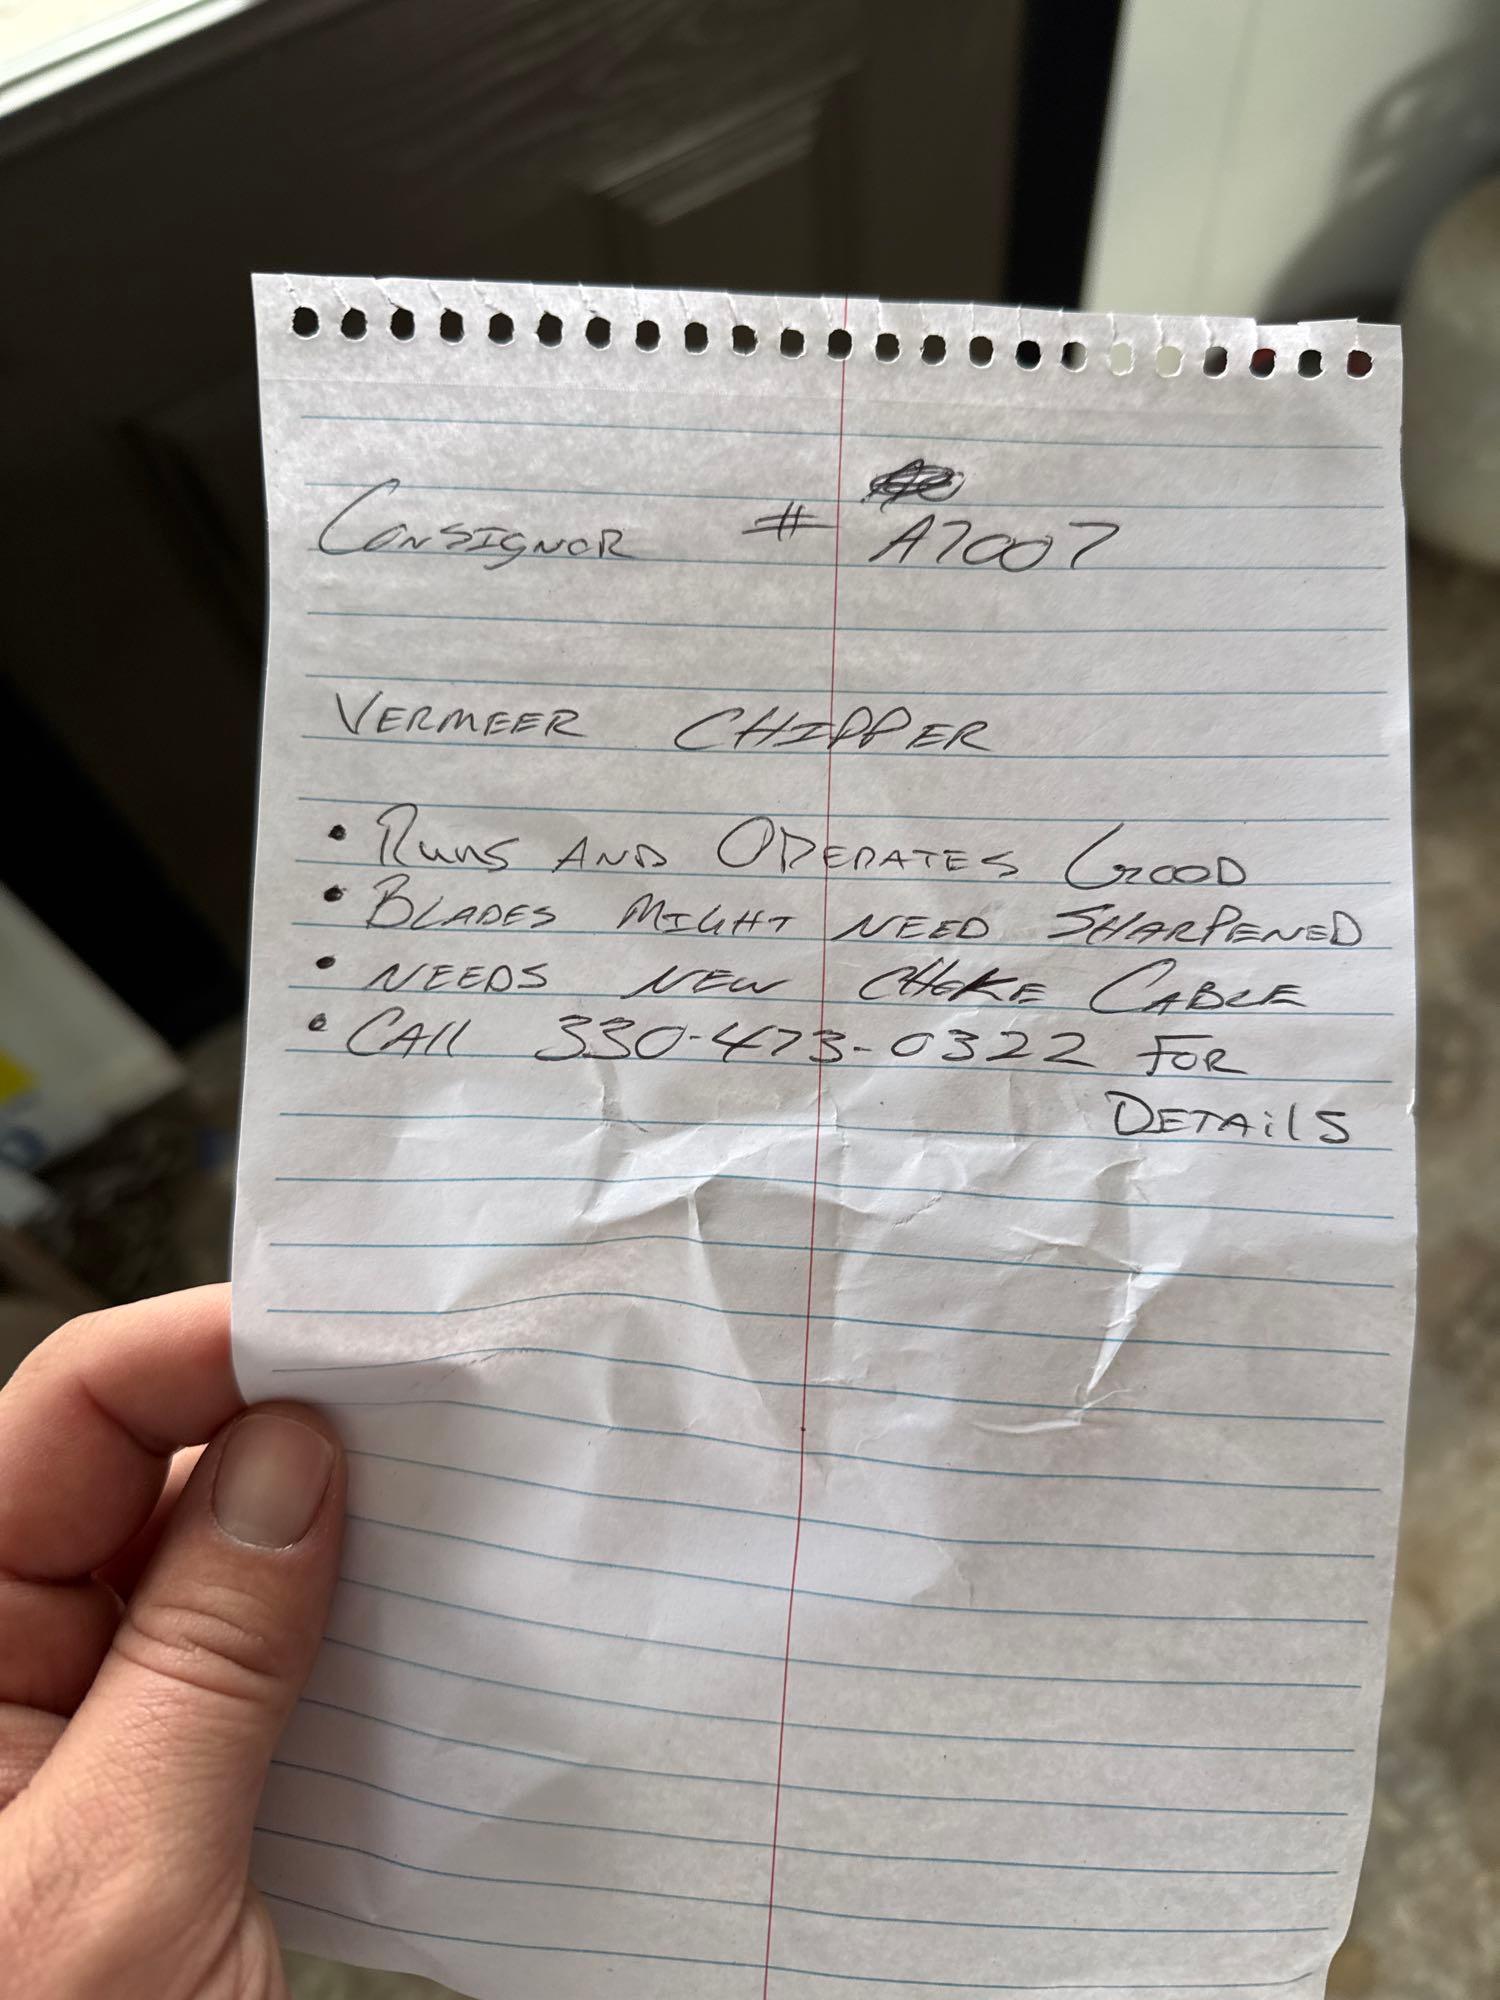 Consignor # A7007
VERMEER CHIPPER
• Runs AND OPERATES GOOD
• BLADES MIGHT NEED SHARPENED
• NEEDS NEW CHOKE CABLE
• CAll 330-473-0322 FOR
DETAilS